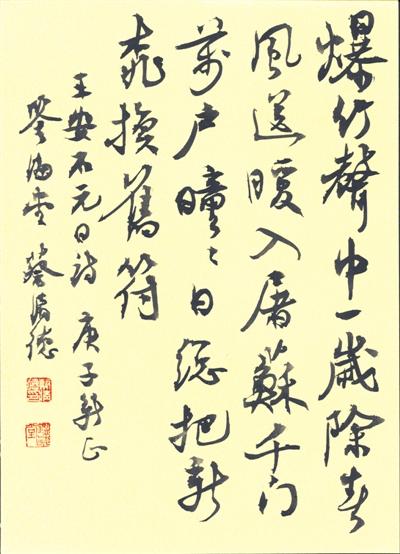 爆竹聲中一歲除春
風送暖入屠蘇千門
萬戶曈〻日總把新
桃換舊符
王安石元日詩 庚子新正
學海堂 蔡